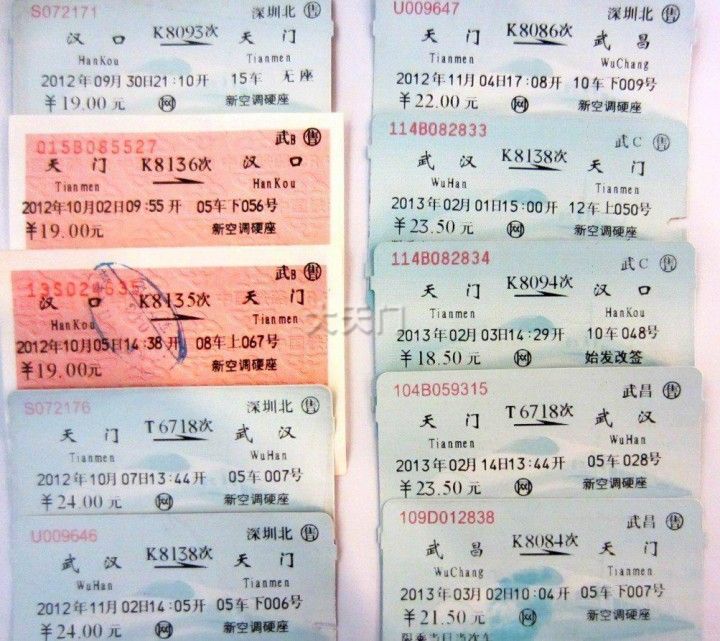 S072171 深圳北 售
汉口 K8093次 天门
HanKou Tianmen
2012年09月30日21:10开 15车 无座
¥19.00元 网 新空调硬座
015B085527 武B 售
天门 K8136次 汉口
Tianmen HanKou
2012年10月02日09:55开 05车下056号
¥19.00元 新空调硬座
13S024635 武B 售
汉口 K8135次 天门
HanKou Tianmen
2012年10月05日14:38开 08车上067号
¥19.00元 新空调硬座
S072176 深圳北 售
天门 T6718次 武汉
Tianmen WuHan
2012年10月07日13:44开 05车007号
¥24.00元 网 新空调硬座
U009646 深圳北 售
武汉 K8138次 天门
WuHan Tianmen
2012年11月02日14:05开 05车下006号
¥24.00元 网 新空调硬座
U009647 深圳北 售
天门 K8086次 武昌
Tianmen WuChang
2012年11月04日17:08开 10车下009号
¥22.00元 网 新空调硬座
114B082833 武C 售
武汉 K8138次 天门
WuHan Tianmen
2013年02月01日15:00开 12车上050号
¥23.50元 网 新空调硬座
114B082834 武C 售
天门 K8094次 汉口
Tianmen HanKou
2013年02月03日14:29开 10车048号
¥18.50元 网 始发改签
104B059315 武昌 售
天门 T6718次 武汉
Tianmen WuHan
2013年02月14日13:44开 05车028号
¥23.50元 网 新空调硬座
109D012838 武昌 售
武昌 K8084次 天门
WuChang Tianmen
2013年03月02日10:04开 05车下007号
¥21.50元 网 新空调硬座
限乘当日当次车
大天门